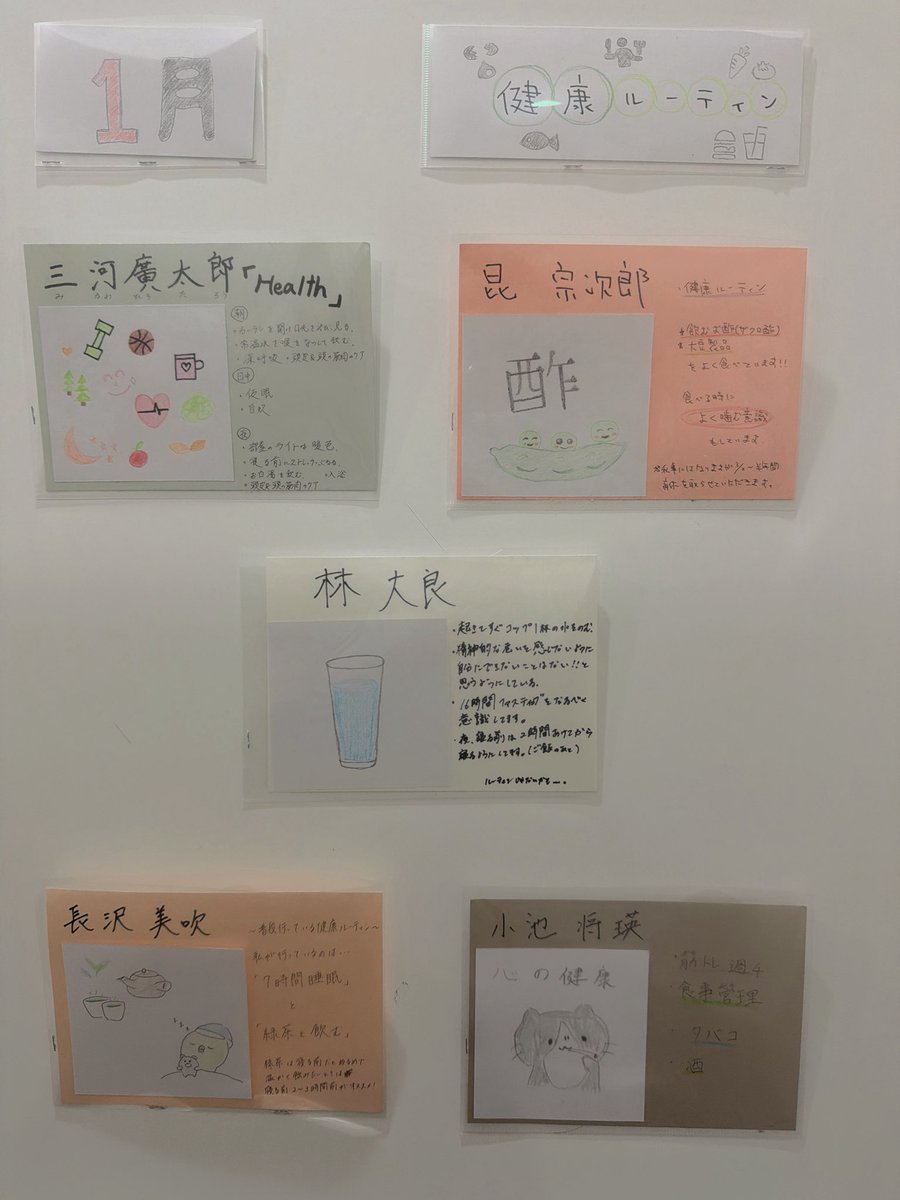 1月
健康ルーティン
三河廣太郎「Health」
み かわ こう た ろう
朝
・カーテンを開け日光を浴び、見る。
・常温水を暖をなつして飲む。
・深呼吸 ・頭皮&頭の筋肉のケア
日中
・仮眠
・自炊
夜
・部屋のライトは暖色。
・寝る前にストレッチ
・お白湯を飲む ・入浴
・頭皮&頭の筋肉のケア
昆 宗次郎
健康ルーティン
飲むお酢(ザクロ酢)
大豆製品
をよく食べています!!
食べる時に
よく噛む意識
もしています
酢
林 大良
・起きてすぐコップ1杯の水をのむ。
・精神的な老いを感じないように
自分にできないことはない!!と
思うようにしている。
・16時間ファスティングをなるべく
意識してます。
・夜、寝る前は2時間あけてから
寝るようにしてます。(ご飯のあと)
長沢 美吹
〜普段行っている健康ルーティン〜
私が行っているのは…
「7時間睡眠」
と
「緑茶を飲む」
寝る前2〜3時間前がオススメ!
小池 将瑛
心の健康
・筋トレ 週4
・食事管理
・タバコ
・酒